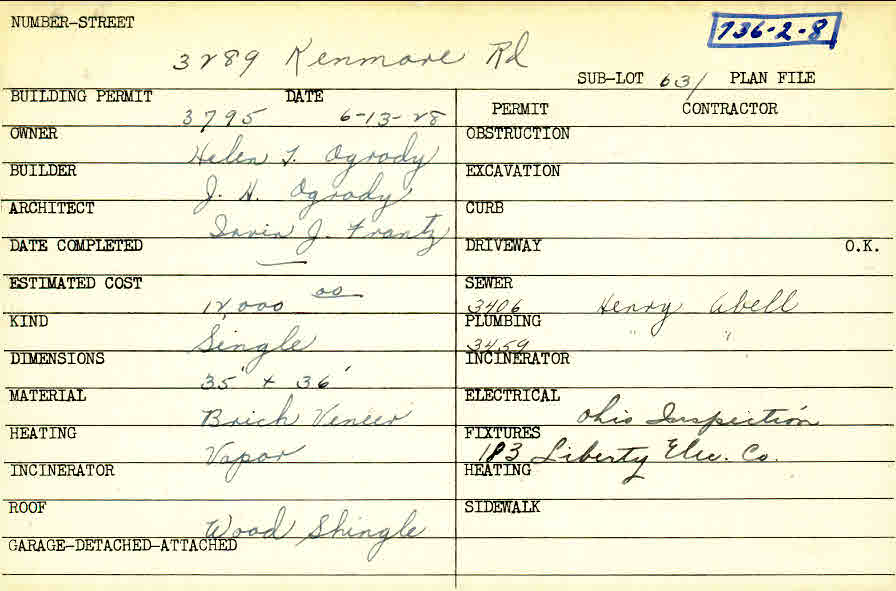 NUMBER-STREET
736-2-8
3289 Kenmore Rd
SUB-LOT 631 PLAN FILE
BUILDING PERMIT DATE
3795 6-13-28
PERMIT CONTRACTOR
OWNER
Helen T. Ogrady
OBSTRUCTION
BUILDER
J. H. Ogrady
EXCAVATION
ARCHITECT
Irvin J. Frantz
CURB
DATE COMPLETED
—
DRIVEWAY O.K.
ESTIMATED COST
12,000 00
SEWER
3406 Henry Abell
KIND
Single
PLUMBING
3459 " "
DIMENSIONS
35' x 36'
INCINERATOR
MATERIAL
Brick Veneer
ELECTRICAL
Ohio Inspection
HEATING
Vapor
FIXTURES
183 Liberty Elec. Co.
INCINERATOR
HEATING
ROOF
Wood Shingle
SIDEWALK
GARAGE-DETACHED-ATTACHED